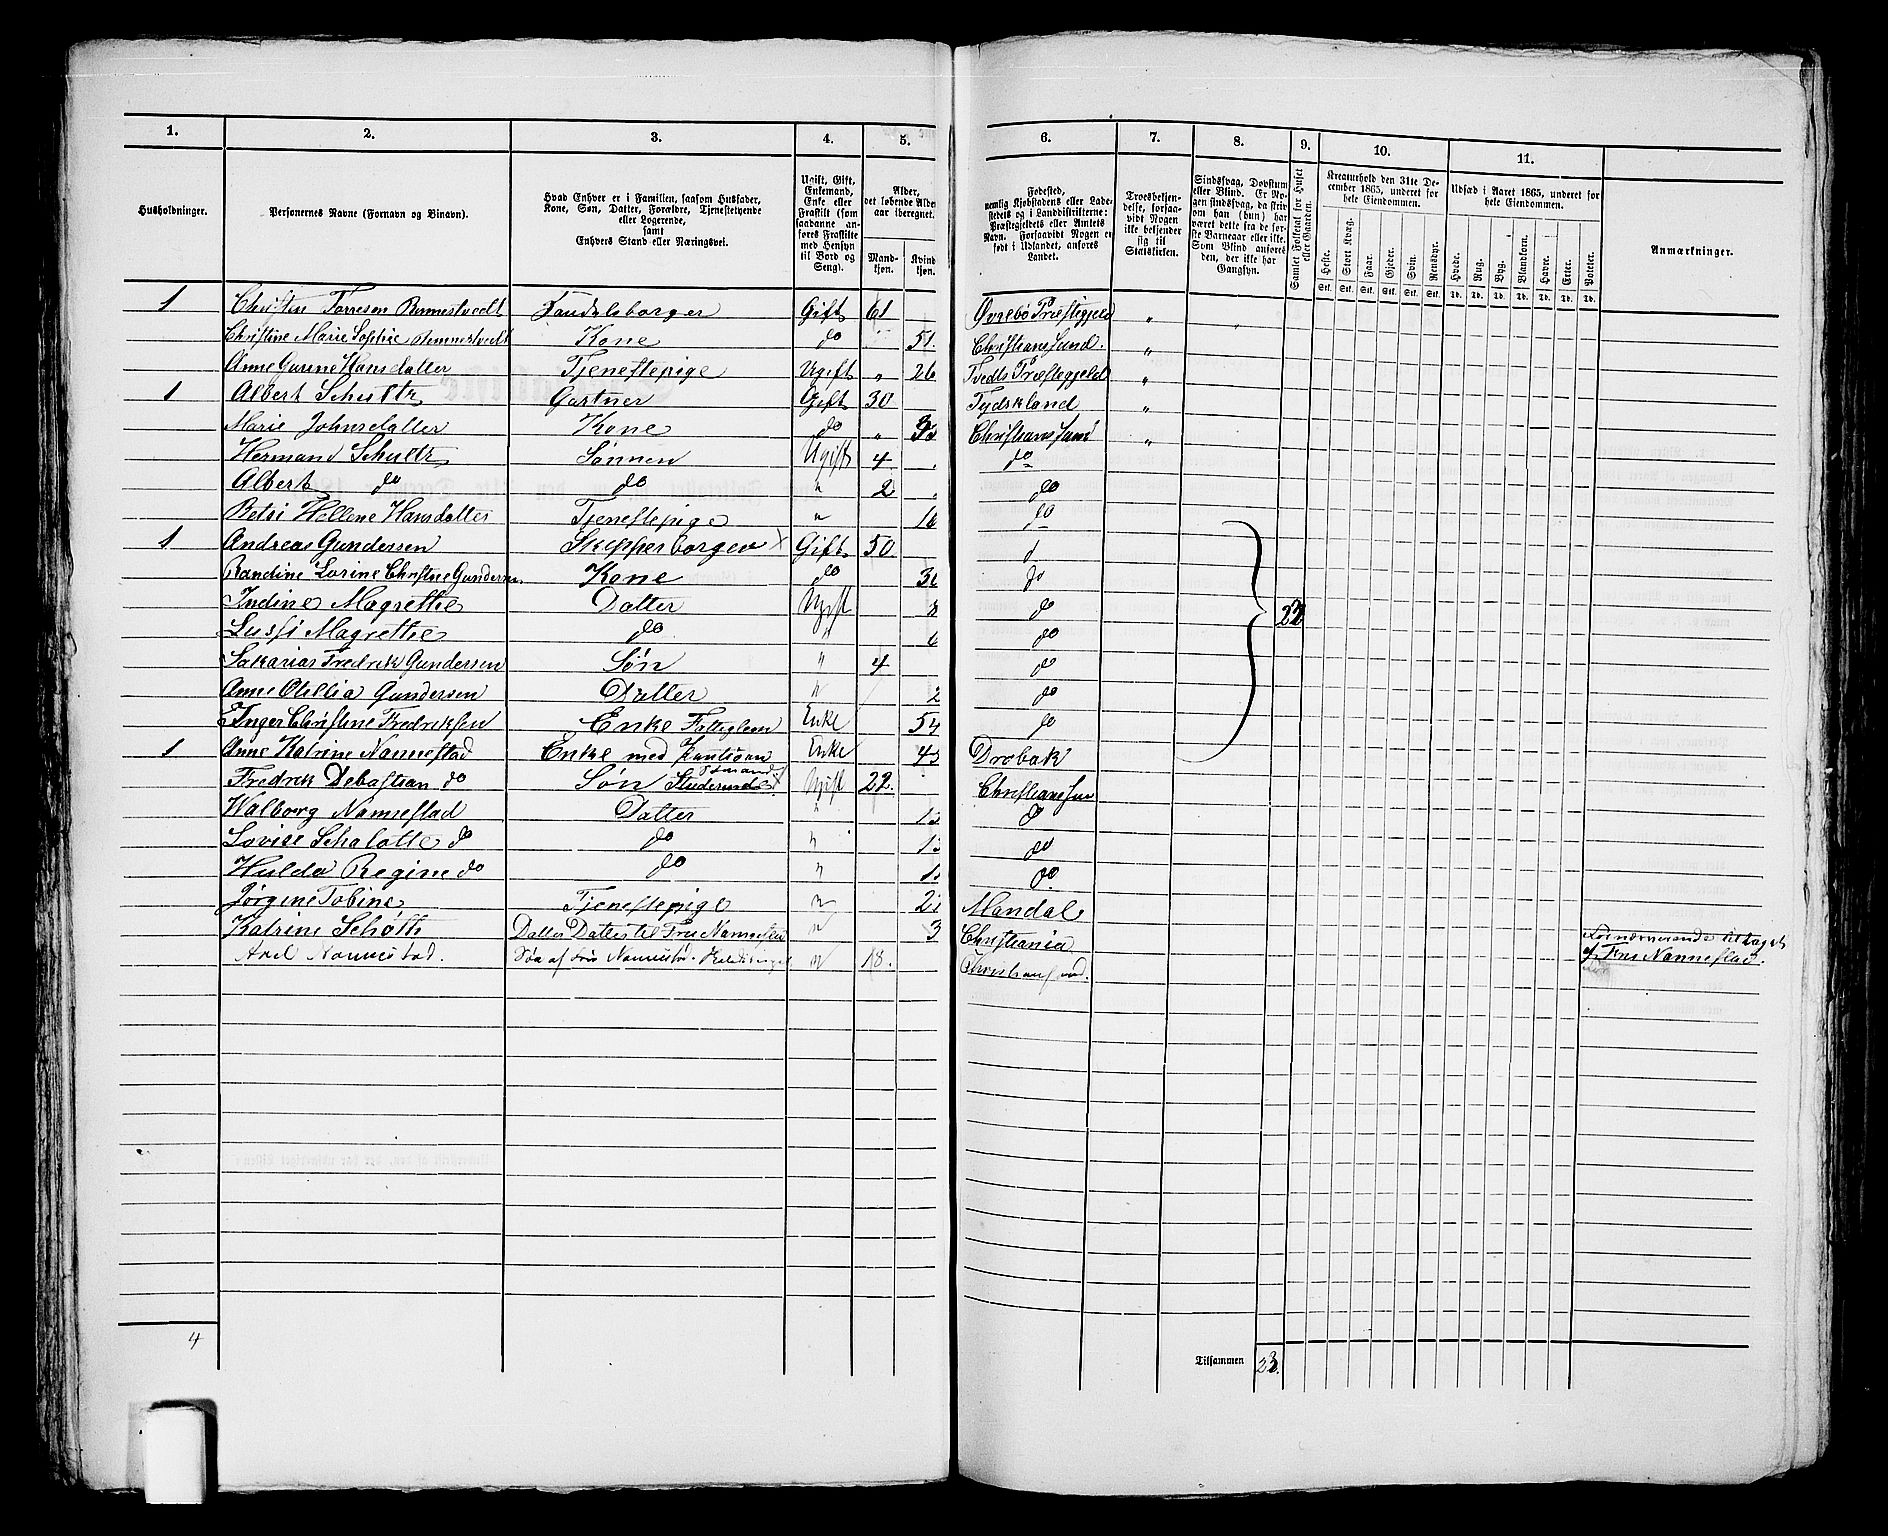 1. 2. 3. 4. 5. 6. 7. 8. 9. 10. 11.
Husholdninger.
Personernes Navne (Fornavn og Binavn).
Hvad Enhver er i Familien, saasom Husfader, Kone, Søn, Datter, Forældre, Tjenestetyende eller Logerende, samt Enhvers Stand eller Næringsvei.
Ugift, Gift, Enkemand, Enke eller Fraskilt (som saadanne anføres Fraskilte med Hensyn til Bord og Seng).
Alder, det løbende Alders aar iberegnet.
Mandkjøn. Kvindkjøn.
Fødested, nemlig Kjøbstadens eller Ladestedets og i Landdistrikterne: Præstegjeldets eller Amtets Navn. Forsaavidt Nogen er født i Udlandet, anføres Landet.
Troesbekjendelse, forsaavidt Nogen ikke bekjender sig til Statskirken.
Sindssvag, Døvstum eller Blind. Er Nogen sindssvag, da skrives om han (hun) har været dette fra de første Barneaar eller ikke. Som Blind anføres den, der ikke har Gangsyn.
Samlet Folketal for Huset eller Gaarden.
Kreaturhold den 31te December 1865, underet for hele Eiendommen.
Heste. Stort Kvæg. Faar. Gjeder. Svin. Rensdyr.
Stk. Stk. Stk. Stk. Stk. Stk.
Udsæd i Aaret 1865, underet for hele Eiendommen.
Hvede. Rug. Byg. Blandkorn. Havre. Erter. Poteter.
Td. Td. Td. Td. Td. Td. Td.
Anmærkninger.
1 Christen Torresen Rennestvedt Gift 61 Øvrebø Præstegjeld " "
Christine Marie Sophie Rennestvedt Kone do 51. Christianssand. "
Anne Gurine Hansdatter Tjenestepige Ugift " 26 Tvedts Præstegjeld "
1 Albert Schultz Gartner Gift 30 Tydskland "
Marie Johnsdatter Kone do " Christianssand "
Hermand Schultz Sønnen Ugift 4 do
Albert do do " 2 do
Betsi Hellene Hansdatter Tjenestepige " do
1 Andreas Gundersen Skipperborger × Gift 50 d
Randine Lorine Christine Gundersen Kone do do
Indine Magrethe Datter Ugift 8 do
Lussi Magrethe do " 6 do
Sakarias Fredrik Gundersen Søn " 4 do
Anne Otillia Gundersen Datter " 2 do
Inger Christine Fredriksen Enke Fattiglem Enke do
1 Anne Katrine Nannestad Enke med Pention Enke 45 Drøbak
Fredrik Sebastian do Søn Studerende Ugift 22. Christianssan
Walborg Nannestad Datter " do
Lovise Schalotte do do " do
Hulda Regine do do " do.
Jørgine Tobine Tjenestepige " Mandal
Katrine Schøth Datter Datter til Fru Nannestad " 3 Christiania
Axel Nannestad. Søn af Fru Nannestad. " 18. Christianssand.
af Fru Nannestad.
23
4
Tilsammen 23.